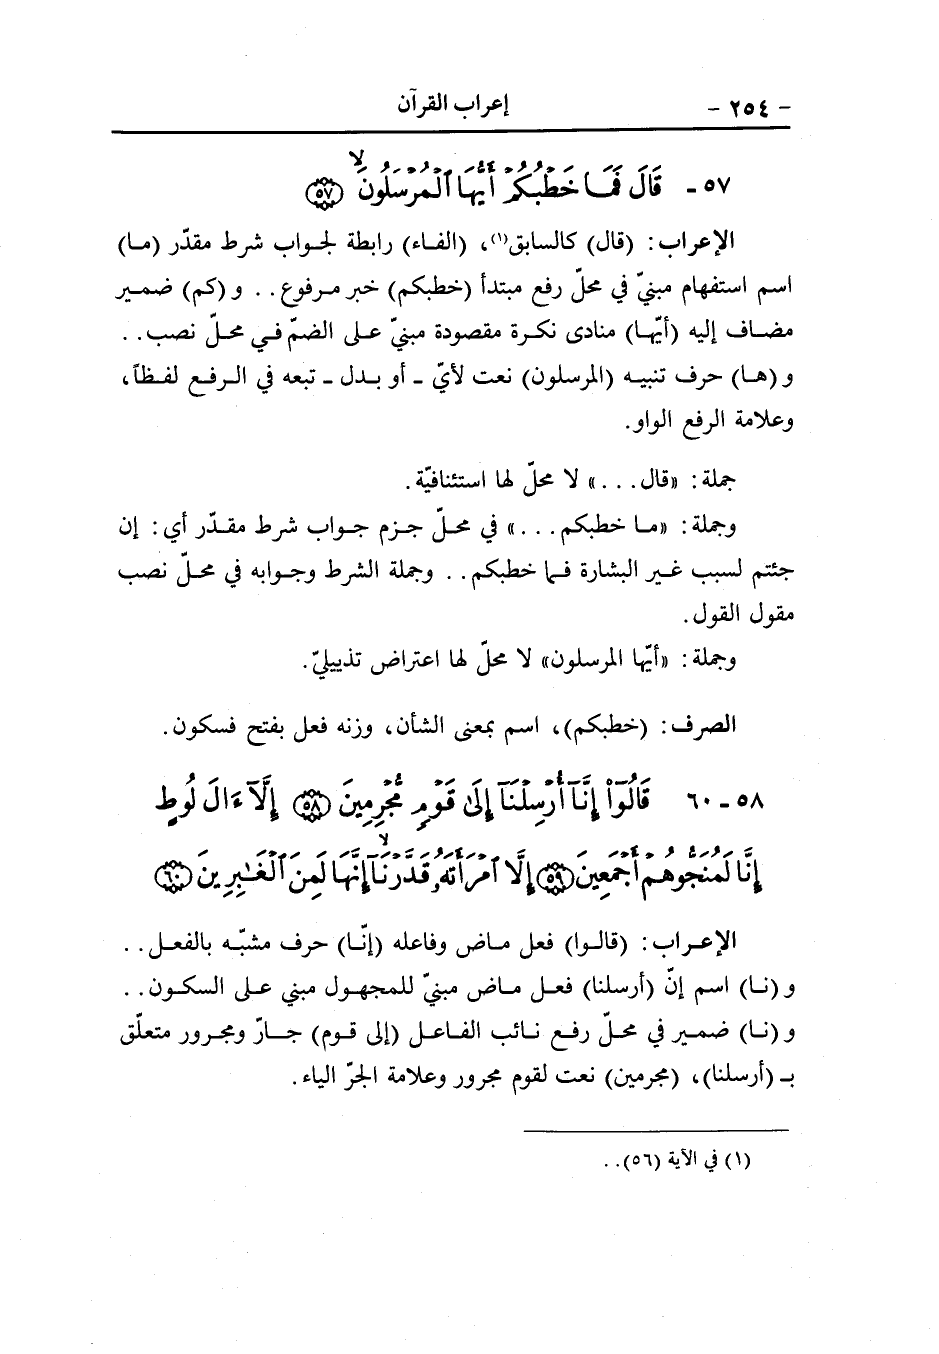 - ٢٥٤ - إعراب القرآن
٥٧ - قَالَ فَمَا خَطْبُكُمْ أَيُّهَا ٱلْمُرْسَلُونَ ۙ ﴿٥٧﴾
الإعراب: (قال) كالسابق(١)، (الفاء) رابطة لجواب شرط مقدّر (ما)
اسم استفهام مبنيّ في محلّ رفع مبتدأ (خطبكم) خبر مرفوع.. و(كم) ضمير
مضاف إليه (أيّها) منادى نكرة مقصودة مبنيّ على الضمّ في محلّ نصب..
و(ها) حرف تنبيه (المرسلون) نعت لأيّ - أو بدل - تبعه في الرفع لفظاً،
وعلامة الرفع الواو.
جملة: «قال...» لا محلّ لها استئنافيّة.
وجملة: «ما خطبكم...» في محلّ جزم جواب شرط مقدّر أي: إن
جئتم لسبب غير البشارة فما خطبكم.. وجملة الشرط وجوابه في محلّ نصب
مقول القول.
وجملة: «أيّها المرسلون» لا محلّ لها اعتراض تذييليّ.
الصرف: (خطبكم)، اسم بمعنى الشأن، وزنه فعل بفتح فسكون.
٥٨ - ٦٠ قَالُوٓا۟ إِنَّآ أُرْسِلْنَآ إِلَىٰ قَوْمٍ مُّجْرِمِينَ ﴿٥٨﴾ إِلَّآ ءَالَ لُوطٍ
إِنَّا لَمُنَجُّوهُمْ أَجْمَعِينَ ﴿٥٩﴾ إِلَّا ٱمْرَأَتَهُۥ قَدَّرْنَآ ۙ إِنَّهَا لَمِنَ ٱلْغَٰبِرِينَ ﴿٦٠﴾
الإعراب: (قالوا) فعل ماض وفاعله (إنّا) حرف مشبّه بالفعل..
و(نا) اسم إنّ (أرسلنا) فعل ماض مبنيّ للمجهول مبني على السكون..
و(نا) ضمير في محلّ رفع نائب الفاعل (إلى قوم) جارّ ومجرور متعلّق
بـ (أرسلنا)، (مجرمين) نعت لقوم مجرور وعلامة الجرّ الياء.
(١) في الآية (٥٦)..